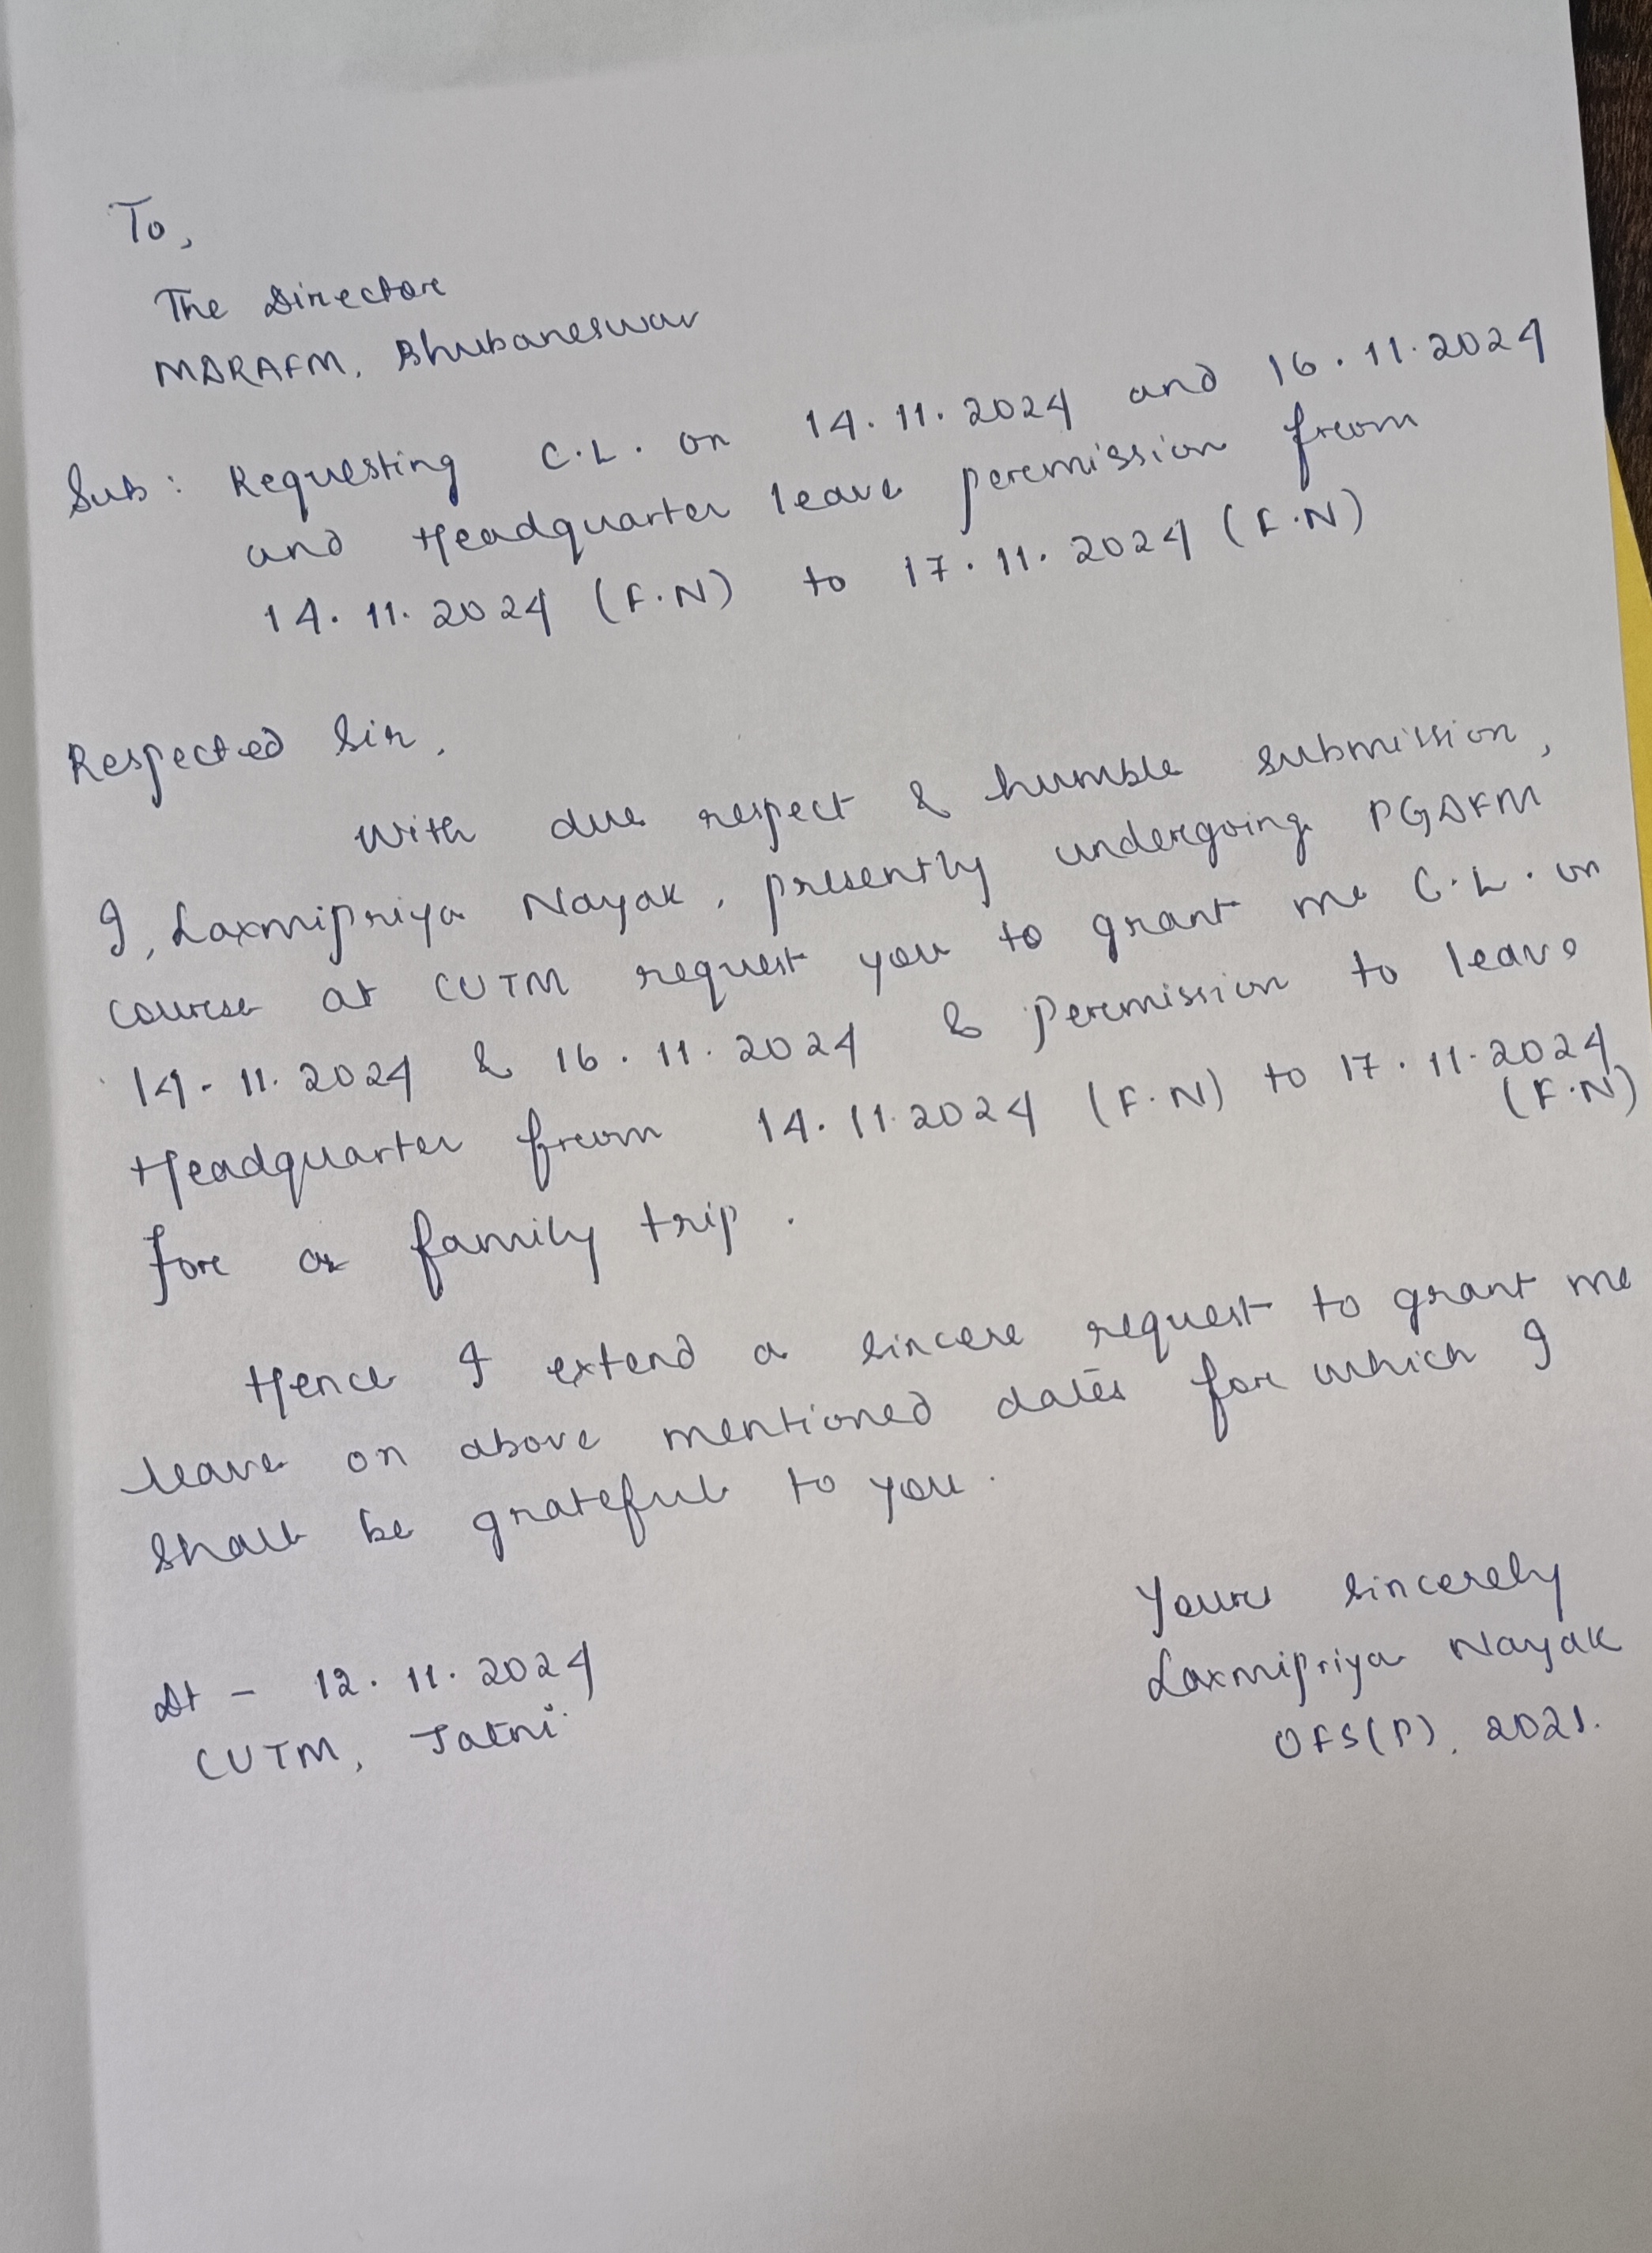 To,
The Director
MDRAFM, Bhubaneswar
Sub: Requesting C.L. on 14.11.2024 and 16.11.2024
and Headquarter leave permission from
14.11.2024 (F.N) to 17.11.2024 (F.N)
Respected Sir,
With due respect & humble submission,
I, Laxmipriya Nayak, presently undergoing PGDFM
course at CUTM request you to grant me C.L. on
14.11.2024 & 16.11.2024 & permission to leave
Headquarter from 14.11.2024 (F.N) to 17.11.2024
(F.N)
for a family trip.
Hence I extend a sincere request to grant me
leave on above mentioned dates for which I
shall be grateful to you.
Yours sincerely
Laxmipriya Nayak
OFS(P), 2021.
Dt - 12.11.2024
CUTM, Jatni